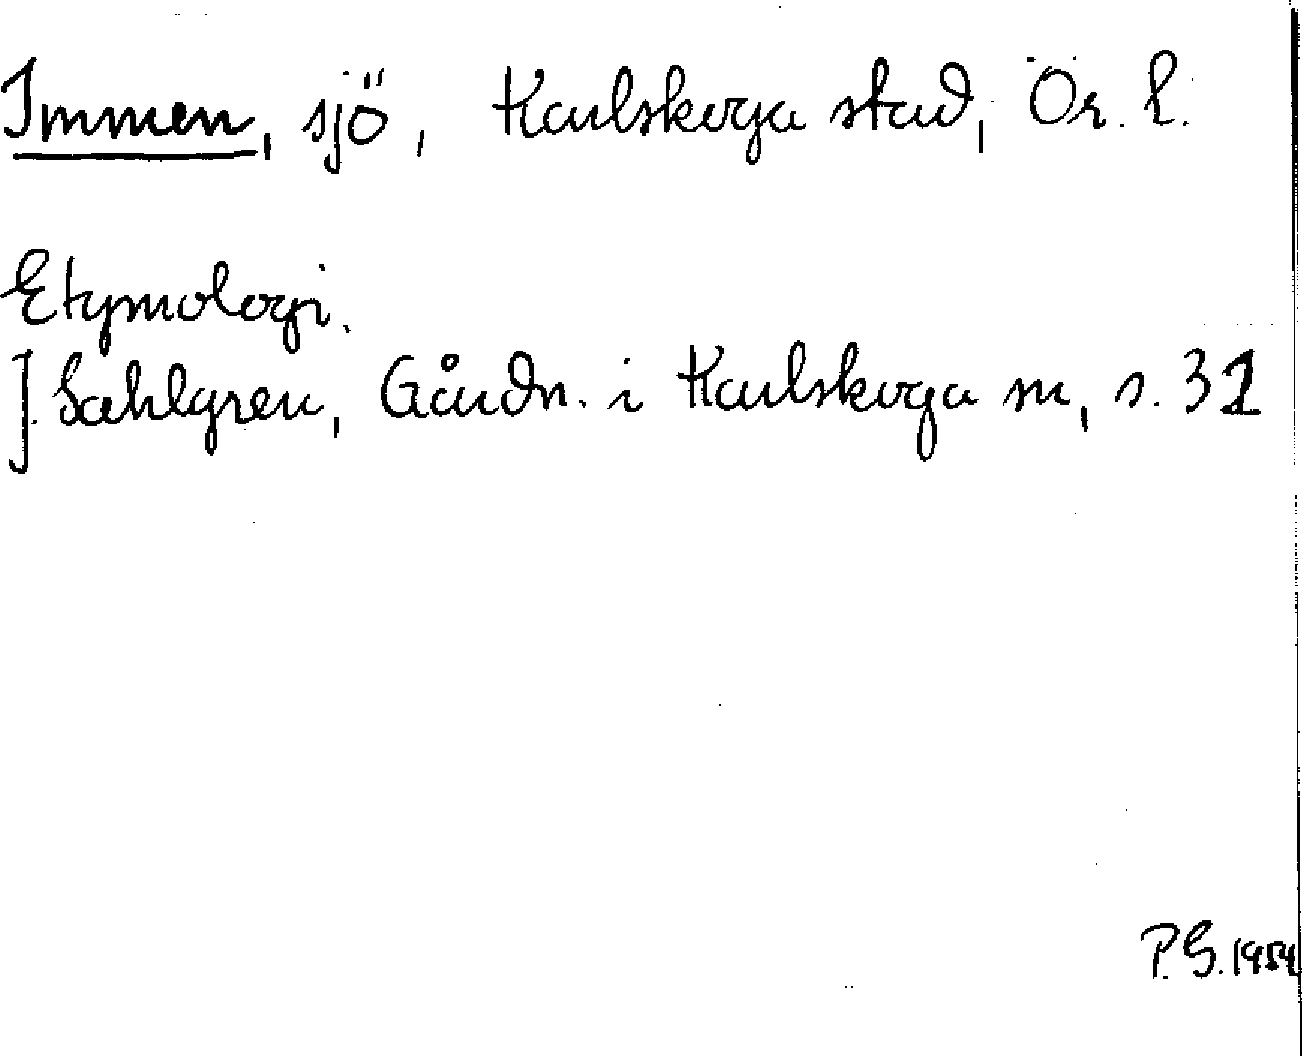 Immen, sjö, Karlskoga stad, Ör. l.
Etymologi.
J. Sahlgren, Gårdn. i Karlskoga sn, s. 31
P.G. 1954